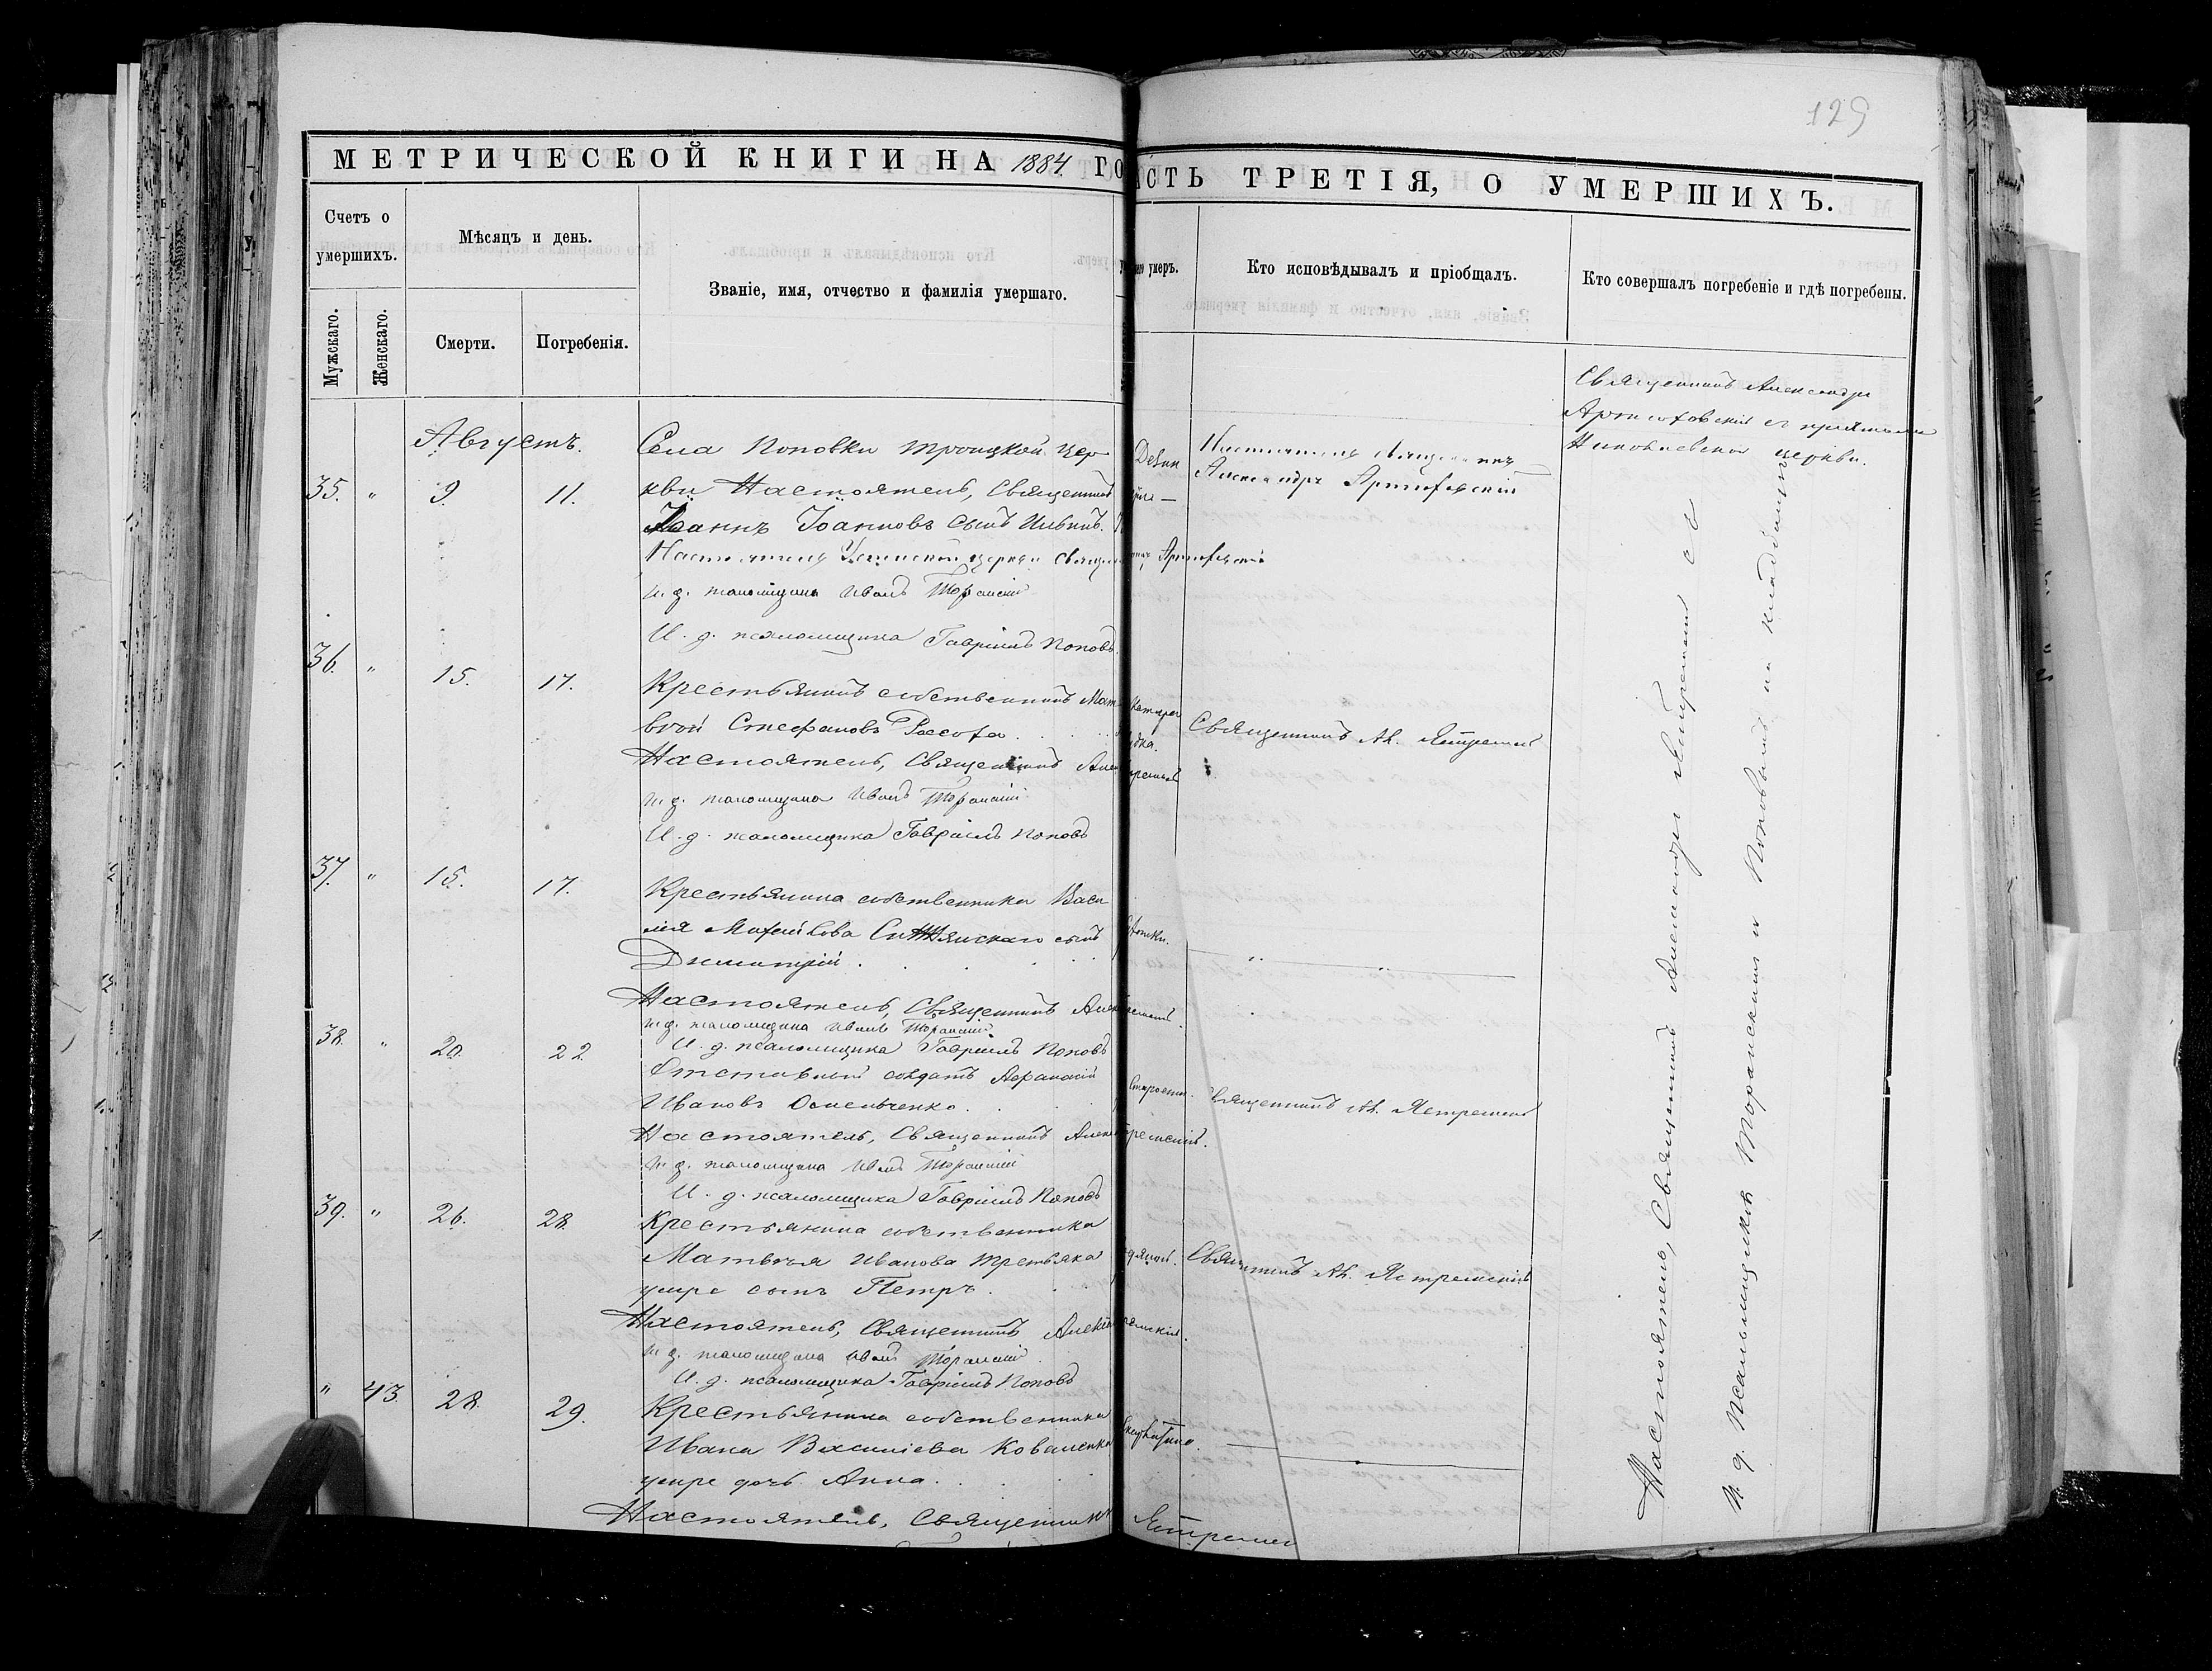 129
МЕТРИЧЕСКОЙ КНИГИ НА 1884. ГО
АСТЬ ТРЕТІЯ, О УМЕРШИХЪ.
Счетъ о умершихъ.
Мужскаго.
Женскаго.
Мѣсяцъ и день.
Смерти.
Погребенія.
Званіе, имя, отчество и фамилія умершаго.
умеръ.
Кто исповѣдывалъ и пріобщалъ.
Кто совершалъ погребеніе и гдѣ погребены.
Августъ.
35. " 9. 11.
Села Поповки Троицкой цер
кви Настоятель, Священникъ
Іоаннъ Іоанновъ сынъ Ильинъ.
Настоятель церкви Священ
и. д. псаломщика Иванъ Торанскій
И. д. псаломщика Гавріилъ Поповъ.
Настоятель священникъ
Александръ
Священникъ Александръ
съ причтомъ
Николаевской церкви.
36. " 15. 17.
Крестьянинъ собственникъ Мат
вѣй Стефановъ Рассоха
Священникъ Ал. Ястремскій
Настоятель, Священникъ Алек
и. д. псаломщика Иванъ Торанскій
И. д. псаломщика Гавріилъ Поповъ
37. " 15. 17.
Крестьянина собственника Васи
лія сынъ
Димитрій
Настоятель, Священникъ Алек
и. д. псаломщика Иванъ Торанскій
И. д. псаломщика Гавріилъ Поповъ
38. " 20. 22.
Отставный солдатъ Афанасій
Ивановъ Омельченко
старости.
Священникъ Ал. Ястремскій
Настоятель, Священникъ Алек стремскій.
и. д. псаломщика Иванъ Торанскій
И. д. псаломщика Гавріилъ Поповъ
39. " 26. 28.
Крестьянина собственника
Матвѣя Иванова Третьяка
умре сынъ Петръ
Священникъ Ал. Ястремскій
Настоятель, Священникъ Алек ремскій.
и. д. псаломщика Иванъ Торанскій
И. д. псаломщика Гавріилъ Поповъ
" 43. 28. 29.
Крестьянина собственника
Ивана Василіева Коваленка
умре дочь Анна.
Настоятель, Священникъ Ястремс
Настоятель, Священникъ Александръ Ястремскій съ
и. д. псаломщиковъ Торанскимъ и Поповымъ на кладбищѣ